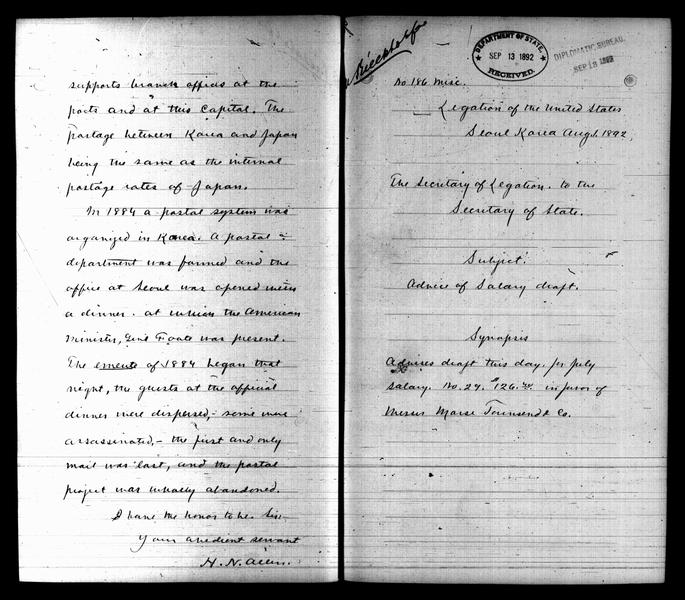 supports branch offices at the
ports and at this Capital. The
postage between Korea and Japan
being the same as the internal
postage rates of Japan.
In 1884 a postal system was
organized in Korea. A postal
department was formed and the
office at Seoul was opened with
a dinner. at which the American
Minister, Genl Foote was present.
The emeute of 1884 began that
night, the guests at the official
dinner were dispersed,- some were
assassinated,- the first and only
mail was lost, and the postal
project was wholly abandoned.
I have the honor to be. Sir-
Your obedient servant
H. N. Allen.
DEPARTMENT OF STATE.
SEP 13 1892
RECEIVED.
DIPLOMATIC BUREAU.
SEP 1892
No 186 Misc.
Legation of the United States
Seoul Korea Aug 1. 1892.
The Secretary of Legation. to the
Secretary of State.
Subject.
Advice of Salary draft.
Synopsis
Advises draft this day. for July
salary. No. 27. $126. in favor of
Messrs Morse Townsend & Co.